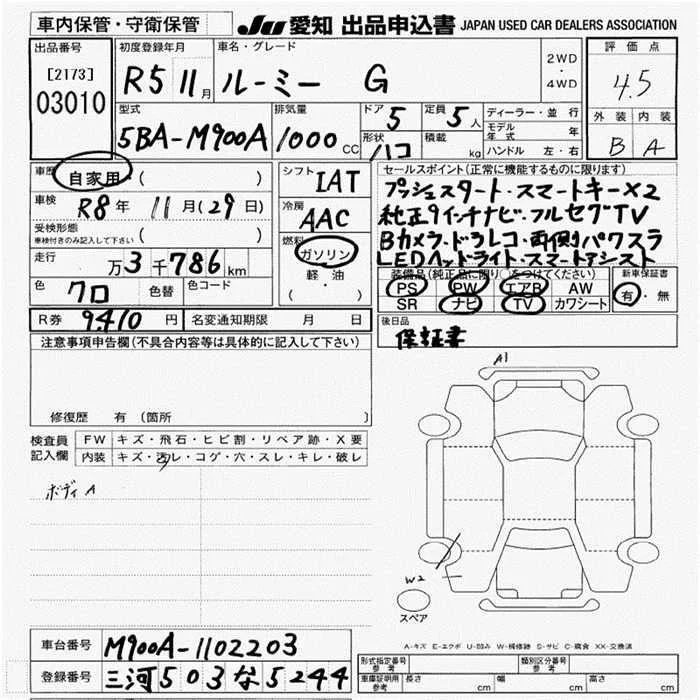 車内保管・守衛保管
JU 愛知 出品申込書 JAPAN USED CAR DEALERS ASSOCIATION
出品番号 初度登録年月 車名・グレード 2WD・4WD 評価点
[2173]
03010 R5 11月 ルーミー G 4.5
型式 排気量 ドア 5 定員 5人 ディーラー・並行 外装 内装
モデル年式 年
5BA-M900A 1000CC 形状 ハコ 積載 kg ハンドル 左・右 B A
車歴 自家用 ( ) シフト IAT セールスポイント(正常に機能するものに限ります)
車検 R8年 11月(29日) 冷房 AAC プッシュスタート・スマートキー×2
純正9インチナビ・フルセグTV
受検形態 車検付きのみ記入して下さい ( ) 燃料 ガソリン Bカメラ・ドラレコ・両側パワスラ
走行 万3千786km 軽油 LEDヘッドライト・スマートアシスト
装備品(純正品に限り○をつけてください) 新車保証書
色 クロ 色替 色コード ( ・ ) PS PW エアB AW 有・無
SR ナビ TV カワシート
R券 9,410円 名変通知期限 月 日 後日品
保証書
注意事項申告欄(不具合内容等は具体的に記入して下さい)
A1
修復歴 有 (箇所 )
検査員記入欄 FW キズ・飛石・ヒビ割・リペア跡・X要
内装 キズ・汚レ・コゲ・穴・スレ・キレ・破レ
ボディ A
W2
スペア
A-キズ E-エクボ U-凹み W-補修跡 S-サビ C-腐食 XX-交換済
車台番号 M900A-1102203
形式指定番号 参考 類別区分番号 参考
登録番号 三河503な5244
車庫証明用 参考 長さ cm 幅 cm 高さ cm